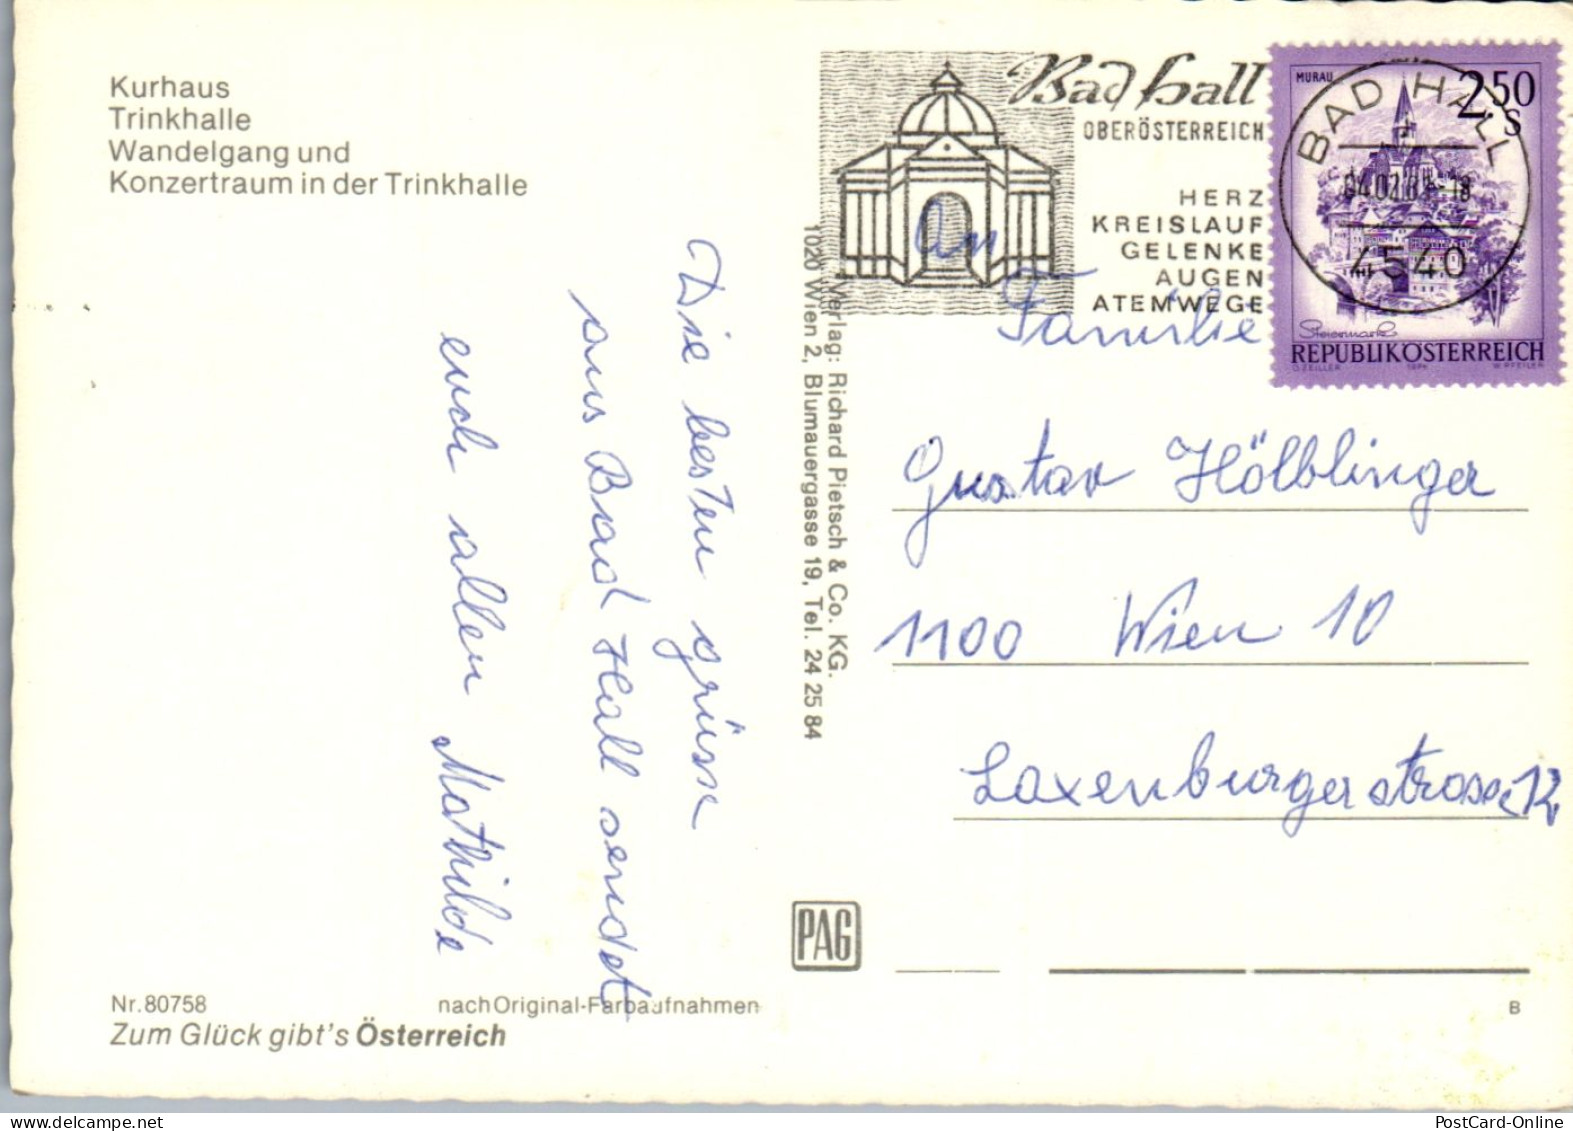 Kurhaus
Trinkhalle
Wandelgang und
Konzertraum in der Trinkhalle
Die besten grüsse
aus Bad Hall sendet
euch allen Mathilde
Nr. 80758
nach Original-Farbaufnahmen
Zum Glück gibt's Österreich
Verlag: Richard Pietsch & Co. KG.
1020 Wien 2, Blumauergasse 19, Tel. 24 25 84
PAG
Bad Hall
OBERÖSTERREICH
HERZ
KREISLAUF
GELENKE
AUGEN
ATEMWEGE
MURAU
2.50
S
BAD HALL
4540
Steiermark
REPUBLIK ÖSTERREICH
O. ZEILLER
W. PFEILER
An
Familie
Gustav Hölblinger
1100 Wien 10
Laxenburgerstrasse 12
B
PostCard-Online